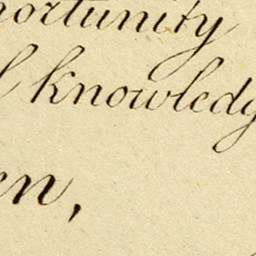 portunity
l knowledg
en,